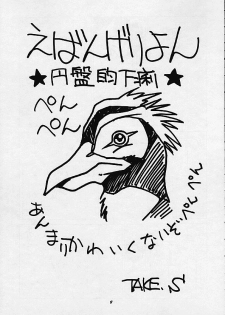 えばんげりよん
★円盤的下痢★
ぺん
ぺん
あんまりかわいくないぞぺんぺん
TAKE.S